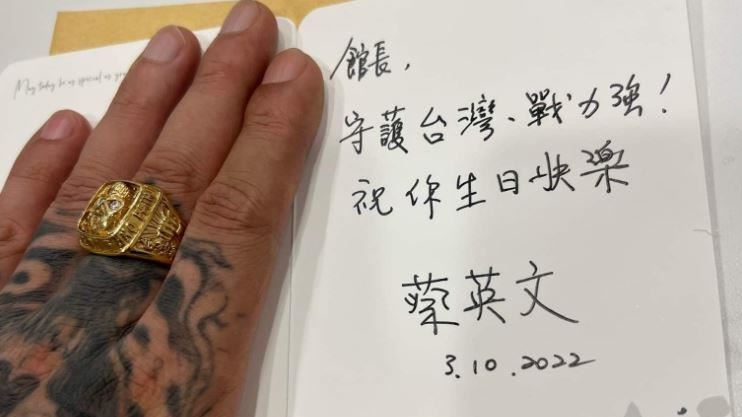 May today be as special as you
館長,
守護台灣、戰力強!
祝你生日快樂
蔡英文
3.10.2022